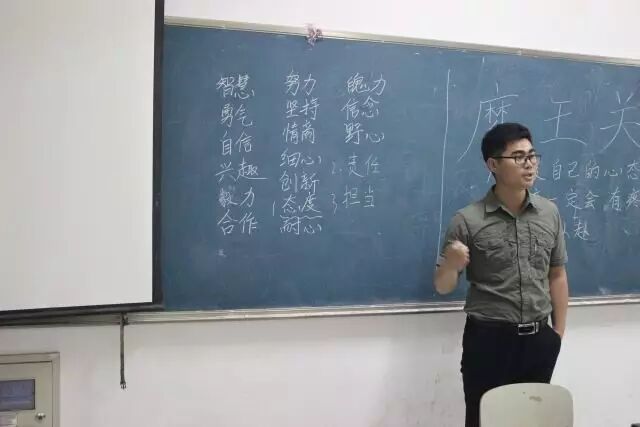 智慧 努力 魄力
勇气 坚持 信念
自信 情商 野心
兴趣 细心 2.责任
毅力 创新 3.担当
合作 1.态度
耐心
魔王关
自己的心态
一定会有疼
赵